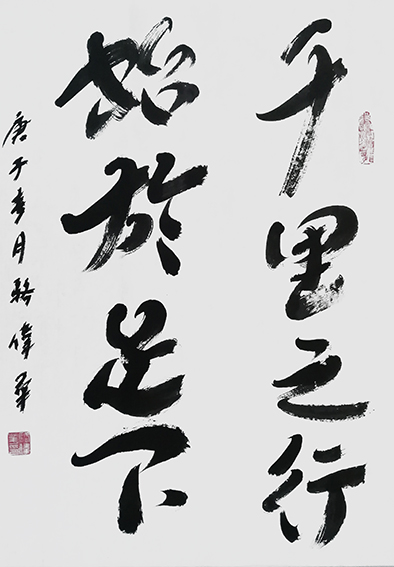 千里之行
始於足下
庚子春月駱偉華